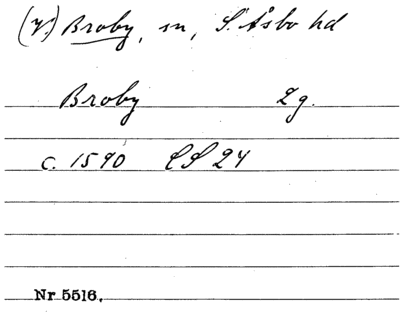 (γ.) Broby, sn, S. Åsbo hd
Broby 2g.
c. 1590 LS 24
Nr 5516.